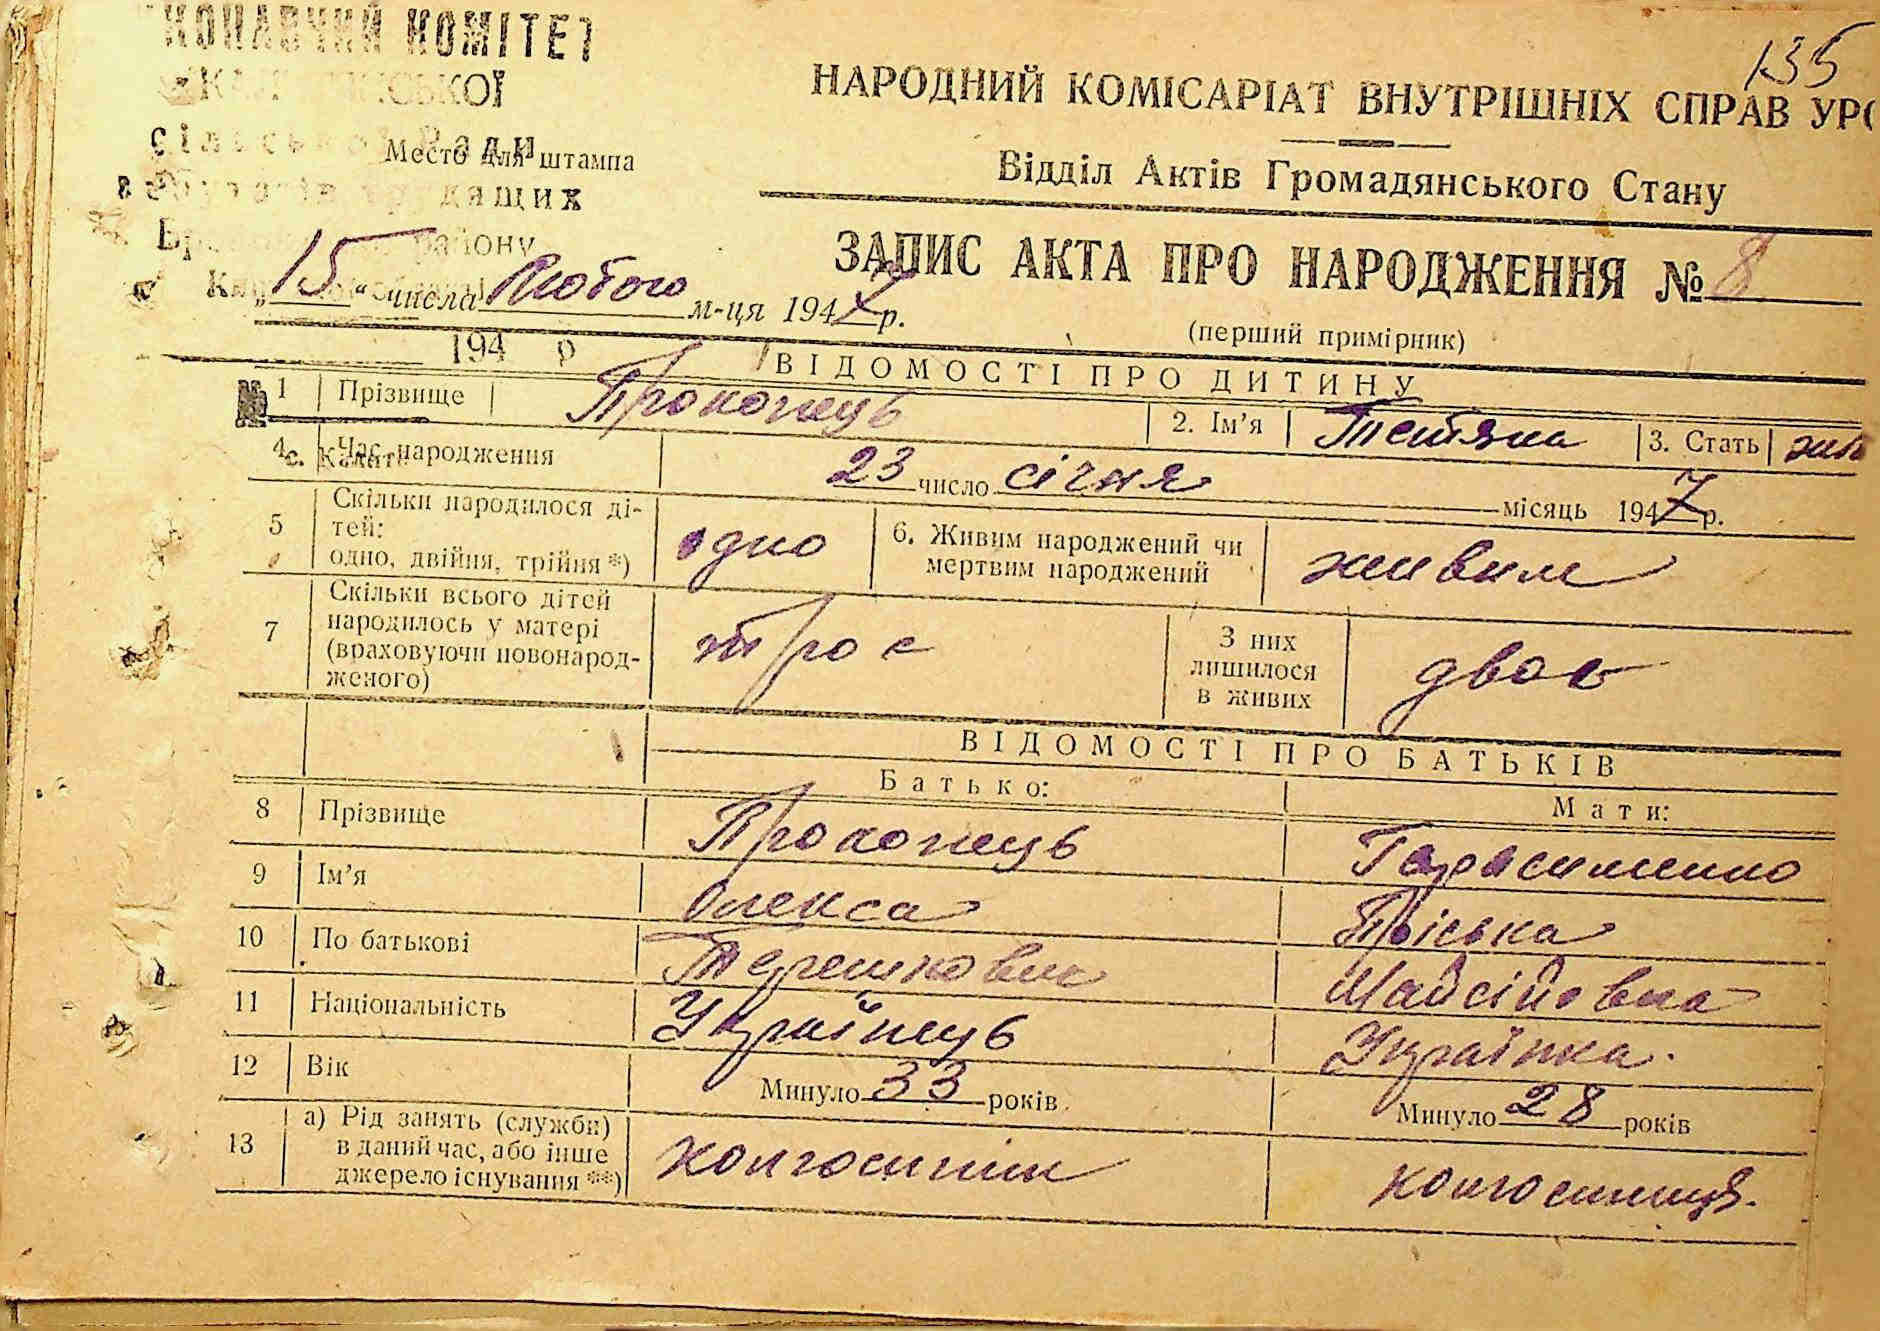 135
КОМІТЕТ
НАРОДНИЙ КОМІСАРІАТ ВНУТРІШНІХ СПРАВ УРС
Место для штампа
Відділ Актів Громадянського Стану
трудящих
району
ЗАПИС АКТА ПРО НАРОДЖЕННЯ № 8
„15“ числа Лютого м-ця 1947 р.
(перший примірник)
194 р
ВІДОМОСТІ ПРО ДИТИНУ
1 Прізвище Проконець 2. Ім’я Тетяна 3. Стать жін
4 Час народження 23 число січня місяць 1947 р.
5 Скільки народилося ді-
тей:
одно, двійня, трійня *) одно 6. Живим народжений чи
мертвим народжений живим
7 Скільки всього дітей
народилось у матері
(враховуючи новонарод-
женого) троє З них
лишилося
в живих двоє
ВІДОМОСТІ ПРО БАТЬКІВ
Батько: Мати:
8 Прізвище Проконець Герасименко
9 Ім’я Олекса Пріська
10 По батькові Терешкович Майсійовна
11 Національність Українець Українка.
12 Вік Минуло 33 років Минуло 28 років
13 а) Рід занять (служби)
в даний час, або інше
джерело існування **) колгоспник колгоспниця.